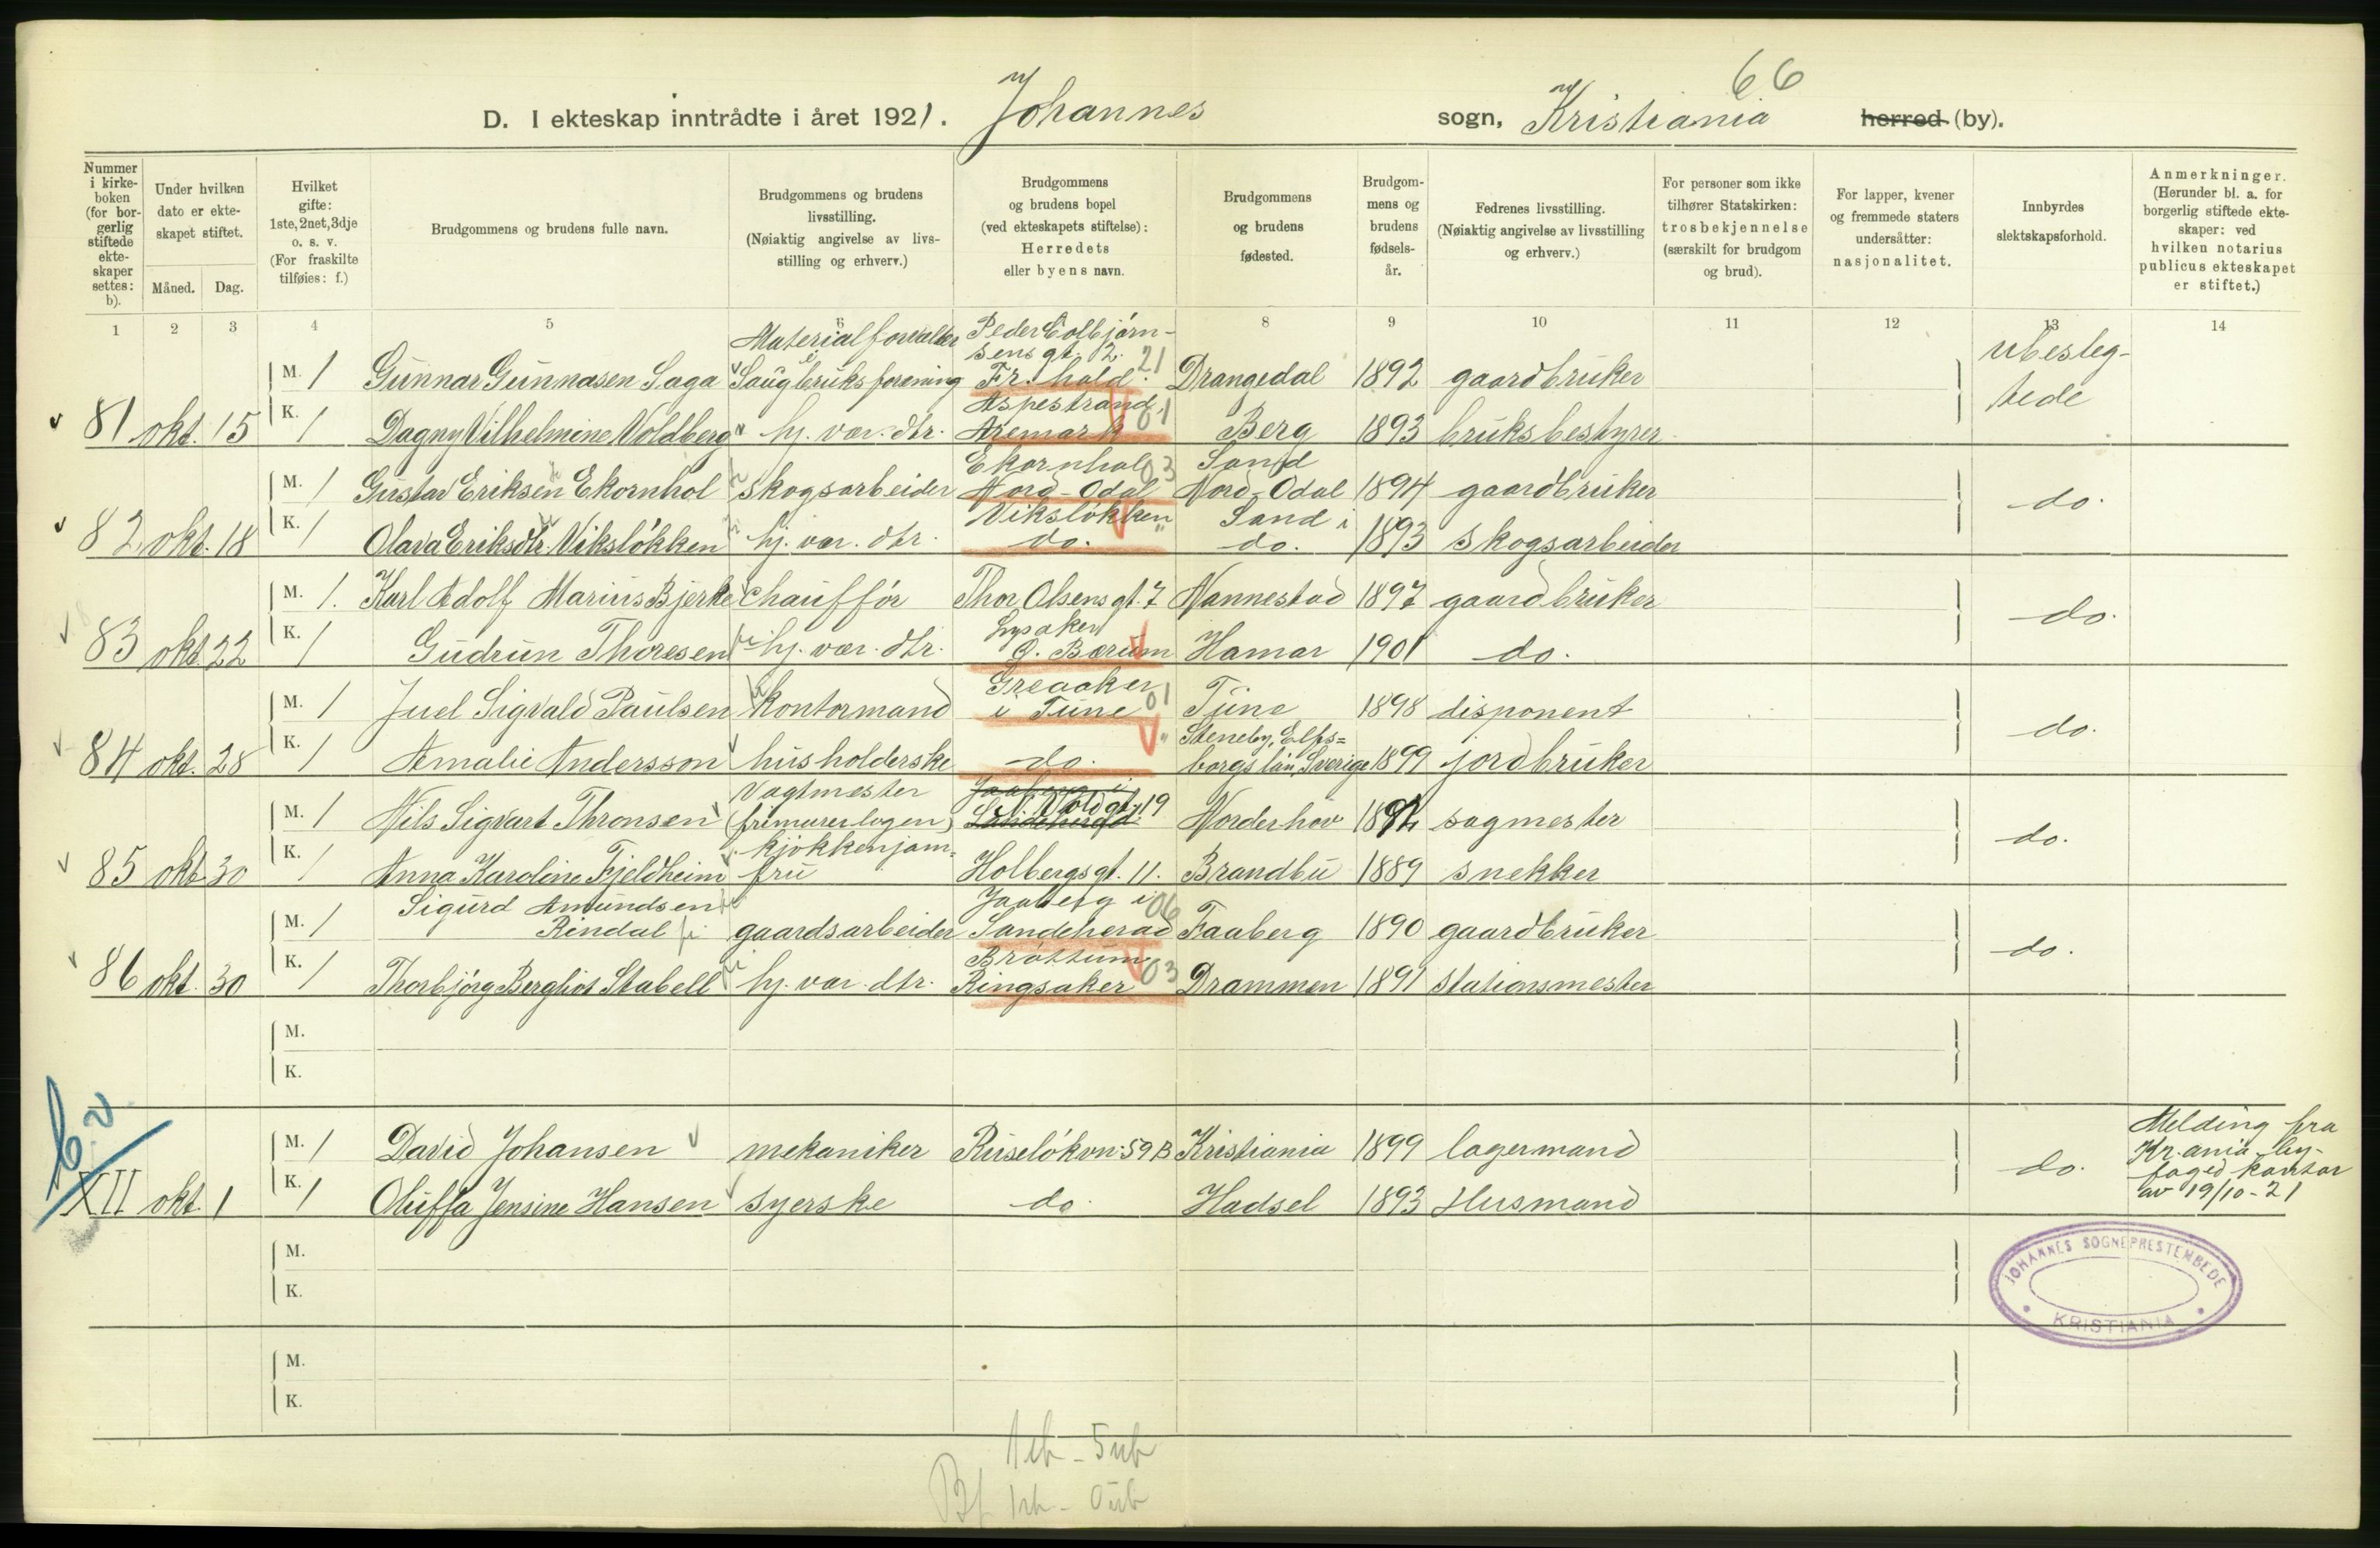 66
D. I ekteskap inntrådte i året 1921. Johannes sogn, Kristiania herred (by).
Nummer i kirke- boken (for bor- gerlig stiftede ekte- skaper settes: b).
Under hvilken dato er ekte- skapet stiftet.
Måned. Dag.
Hvilket gifte: 1ste, 2net, 3dje o. s. v. (For fraskilte tilføies: f.)
Brudgommens og brudens fulle navn.
Brudgommens og brudens livsstilling. (Nøiaktig angivelse av livs- stilling og erhverv.)
Brudgommens og brudens bopel (ved ekteskapets stiftelse): Herredets eller byens navn.
Brudgommens og brudens fødested.
Brudgom- mens og brudens fødsels- år.
Fedrenes livsstilling. (Nøiaktig angivelse av livsstilling og erhverv.)
For personer som ikke tilhører Statskirken: trosbekjennelse (særskilt for brudgom og brud).
For lapper, kvener og fremmede staters undersåtter: nasjonalitet.
Innbyrdes slektskapsforhold.
Anmerkninger. (Herunder bl. a. for borgerlig stiftede ekte- skaper: ved hvilken notarius publicus ekteskapet er stiftet.)
1 2 3 4 5 6 8 9 10 11 12 13 14
Materialforvalter Peder Colbjørn-
sens gt. 12. 21 ubesleg-
M. 1 Gunnar Gunnasen Saga Saugbruksforening Fr.hald. Drangedal 1892 gaardbruker tede
Aspestrand, 01
81 okt. 15 K. 1 Dagny Vilhelmine Voldberg hj. vær. dtr. Aremark Berg 1893 bruksbestyrer
Ekornhol 03 Sand
M. 1 Gustav Eriksen Ekornhol skogsarbeider Nord-Odal Nord-Odal 1894 gaardbruker do.
Viksløkken Sand i
82 okt. 18 K. 1 Olava Eriksdtr. Viksløkken hj. vær. dtr. do. do. 1893 skogsarbeider
M. 1. Karl Adolf Marius Bjerke chauffør Thor Olsens gt. 7 Nannestad 1897 gaardbruker do.
Lysaker
83 okt. 22 K. 1 Gudrun Thoresen hj. vær. dtr. Ø. Bærum Hamar 1901 do.
Greaaker 01
M. 1 Juel Sigvald Paulsen kontormand i Tune Tune 1898 disponent do.
Steneby, Elfs=
84 okt. 28 K. 1 Amalie Andersson husholderske do. borgs län, Sverige 1899 jordbruker
Vagtmester Jaaberg i
M. 1 Nils Sigvart Thronsen (frimurerlogen) Sandeherad N. Vold gt. 19 Norderhov 1892 sagmester do.
kjøkkenjom=
85 okt. 30 K. 1 Anna Karoline Fjeldheim fru Holbergs gt. 11. Brandbu 1889 snekker
Sigurd Amundsen Jaaberg i 06
M. 1 Rindal gaardsarbeider Sandeherad Faaberg 1890 gaardbruker do.
Brøttum 03
86 okt. 30 K. 1 Thorbjørg Bergliot Stabell hj. vær. dtr. Ringsaker Drammen 1891 stationsmester
M.
K.
b.v
Melding fra
M. 1 David Johansen mekaniker Ruseløkvn. 59B Kristiania 1899 lagermand do. Kr.ania by-
foged kontor
XII okt. 1 K. 1 Oluffa Jensine Hansen syerske do. Hadsel 1893 Husmand av 19/10-21
JOHANNES SOGNEPRESTEMBEDE
KRISTIANIA
M.
K.
M.
K.